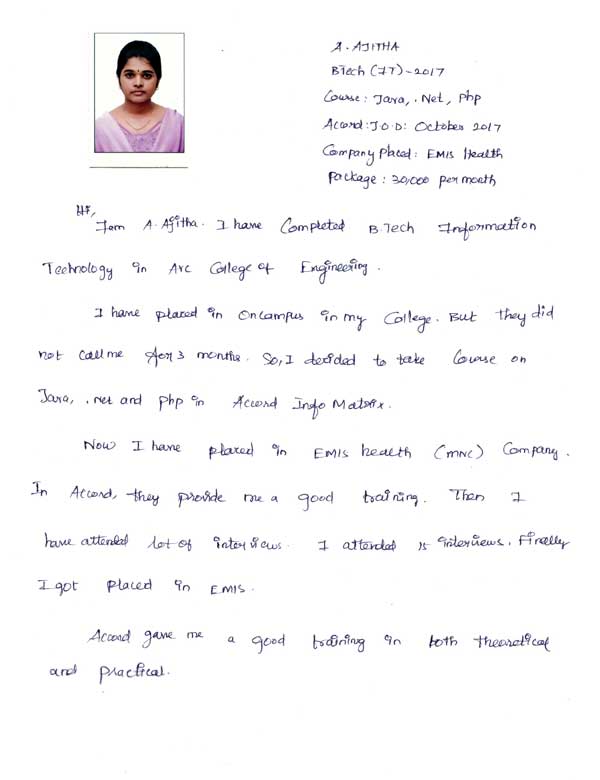 A. AJITHA
BTech (IT) - 2017
Course: Java, .Net, Php
Accord: J.O.D: October 2017
Company Placed: EMIS Health
Package: 30,000 per month
Hi,
I am A. Ajitha. I have Completed B.Tech Information
Technology in Arc College of Engineering.
I have placed in OnCampus in my College. But they did
not call me for 3 months. So, I decided to take Course on
Java, .Net and Php in Accord Info Matrix.
Now I have placed in EMIS health (MNC) Company.
In Accord, they provide me a good training. Then I
have attended lot of interviews. I attended 15 interviews. Finally
I got placed in EMIS.
Accord gave me a good training in both theoretical
and practical.